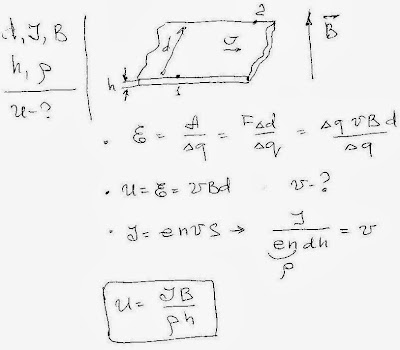 d, I, B
h, ρ
u - ?
2
d
v
h
1
B
• ℰ = A/Δq = FΔd/Δq = Δq v B d/Δq
• u = ℰ = vBd v - ?
• I = envS → I/(en dh) = v
ρ
u = IB/ρh